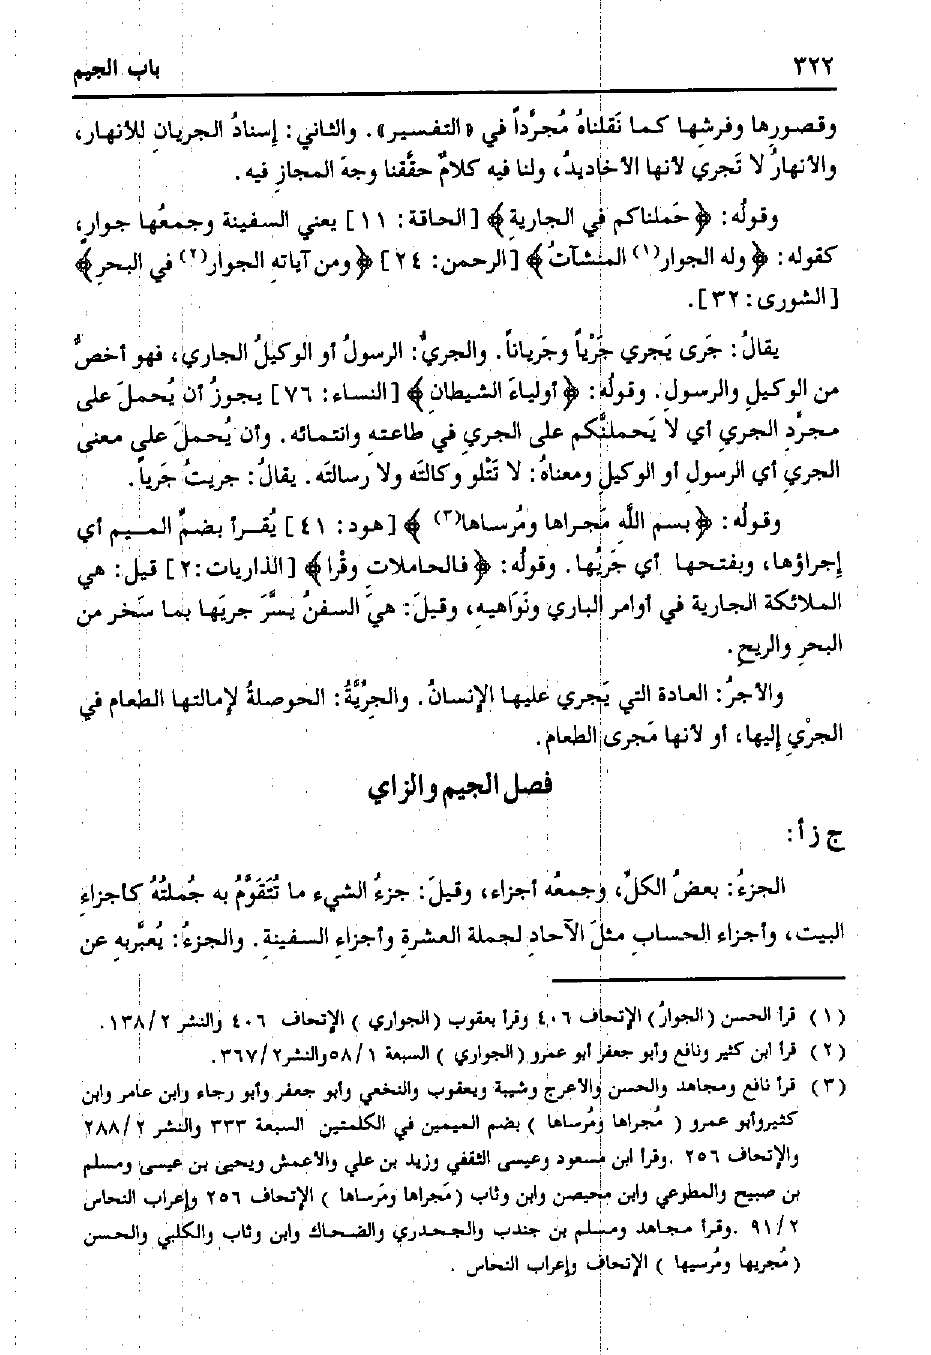 ٣٢٢ باب الجيم
وقصورِها وفرشِها كما نَقلناهُ مُجرَّداً في «التفسير». والثاني: إسنادُ الجريانِ للأنهار،
والأنهارُ لا تَجري لأنها الأخاديدُ، ولنا فيه كلامٌ حقَّقنا وجهَ المجازِ فيه.
وقولُه: ﴿حَملناكم في الجارية﴾ [الحاقة: ١١] يعني السفينة وجمعُها جوارٍ،
كقوله: ﴿وله الجوار(١) المنشآتُ﴾ [الرحمن: ٢٤] ﴿ومن آياتهِ الجوار(٢) في البحرِ﴾
[الشورى: ٣٢].
يقالُ: جَرى يَجري جَرْياً وجَرياناً. والجريُّ: الرسولُ أو الوكيلُ الجاري، فهو أخصُّ
من الوكيلِ والرسولِ. وقولُه: ﴿أولياءَ الشيطانِ﴾ [النساء: ٧٦] يجوزُ أن يُحملَ على
مجرَّدِ الجري أي لا يَحملنَّكم على الجري في طاعتهِ وانتمائه. وأن يُحملَ على معنى
الجريِ أي الرسولِ أو الوكيلِ ومعناهُ: لا تَتْلو وكالتَه ولا رسالتَه. يقالُ: جريتُ جَرياً.
وقولُه: ﴿بسم اللَّهِ مَجراها ومُرساها(٣)﴾ [هود: ٤١] يُقرأ بضمِّ الميم أي
إجراؤها، وبفتحها أي جَريُها. وقولُه: ﴿فالحاملاتِ وِقْرا﴾ [الذاريات:٢] قيل: هي
الملائكة الجارية في أوامر الباري ونَوَاهيهِ، وقيلَ: هيَ السفنُ يسَّرَ جريَها بما سَخر من
البحرِ والريحِ.
والأجرُ: العادة التي يَجري عليها الإنسانُ. والجِرَّيَّةُ: الحوصلةُ لإمالتها الطعام في
الجرْيِ إليها، أو لأنها مَجرى الطعام.
فصل الجيم والزاي
ج ز أ:
الجزءُ: بعضُ الكلِّ، وجمعُه أجزاء، وقيلَ: جزءُ الشيء ما تُتَقَوَّمُ به جُملتُهُ كأجزاءِ
البيت، وأجزاء الحسابِ مثلَ الآحادِ لجملة العشرةِ وأجزاءِ السفينةِ. والجزءُ: يُعبَّربه عن
(١) قرأ الحسن (الجوارُ) الإتحاف ٤٠٦ وقرأ يعقوب (الجواري) الإتحاف ٤٠٦ والنشر ١٣٨/٢.
(٢) قرأ ابن كثير ونافع وأبو جعفر أبو عمرو (الجواري) السبعة ٥٨/١والنشر٣٦٧/٢.
(٣) قرأ نافع ومجاهد والحسن والأعرج وشيبة ويعقوب والنخعي وأبو جعفر وأبو رجاء وابن عامر وابن
كثيروأبو عمرو ( مُجراها ومُرساها ) بضم الميمين في الكلمتين السبعة ٣٣٣ والنشر ٢٨٨/٢
والإتحاف ٢٥٦ .وقرأ ابن مسعود وعيسى الثقفي وزيد بن علي والأعمش ويحيى بن عيسى ومسلم
بن صبيح والمطوعي وابن محيصن وابن وثاب (مَجراها ومَرساها ) الإتحاف ٢٥٦ وإعراب النحاس
٩١/٢ .وقرأ مجاهد ومسلم بن جندب والجحدري والضحاك وابن وثاب والكلبي والحسن
(مُجريها ومُرسيها ) الإتحاف وإعراب النحاس .